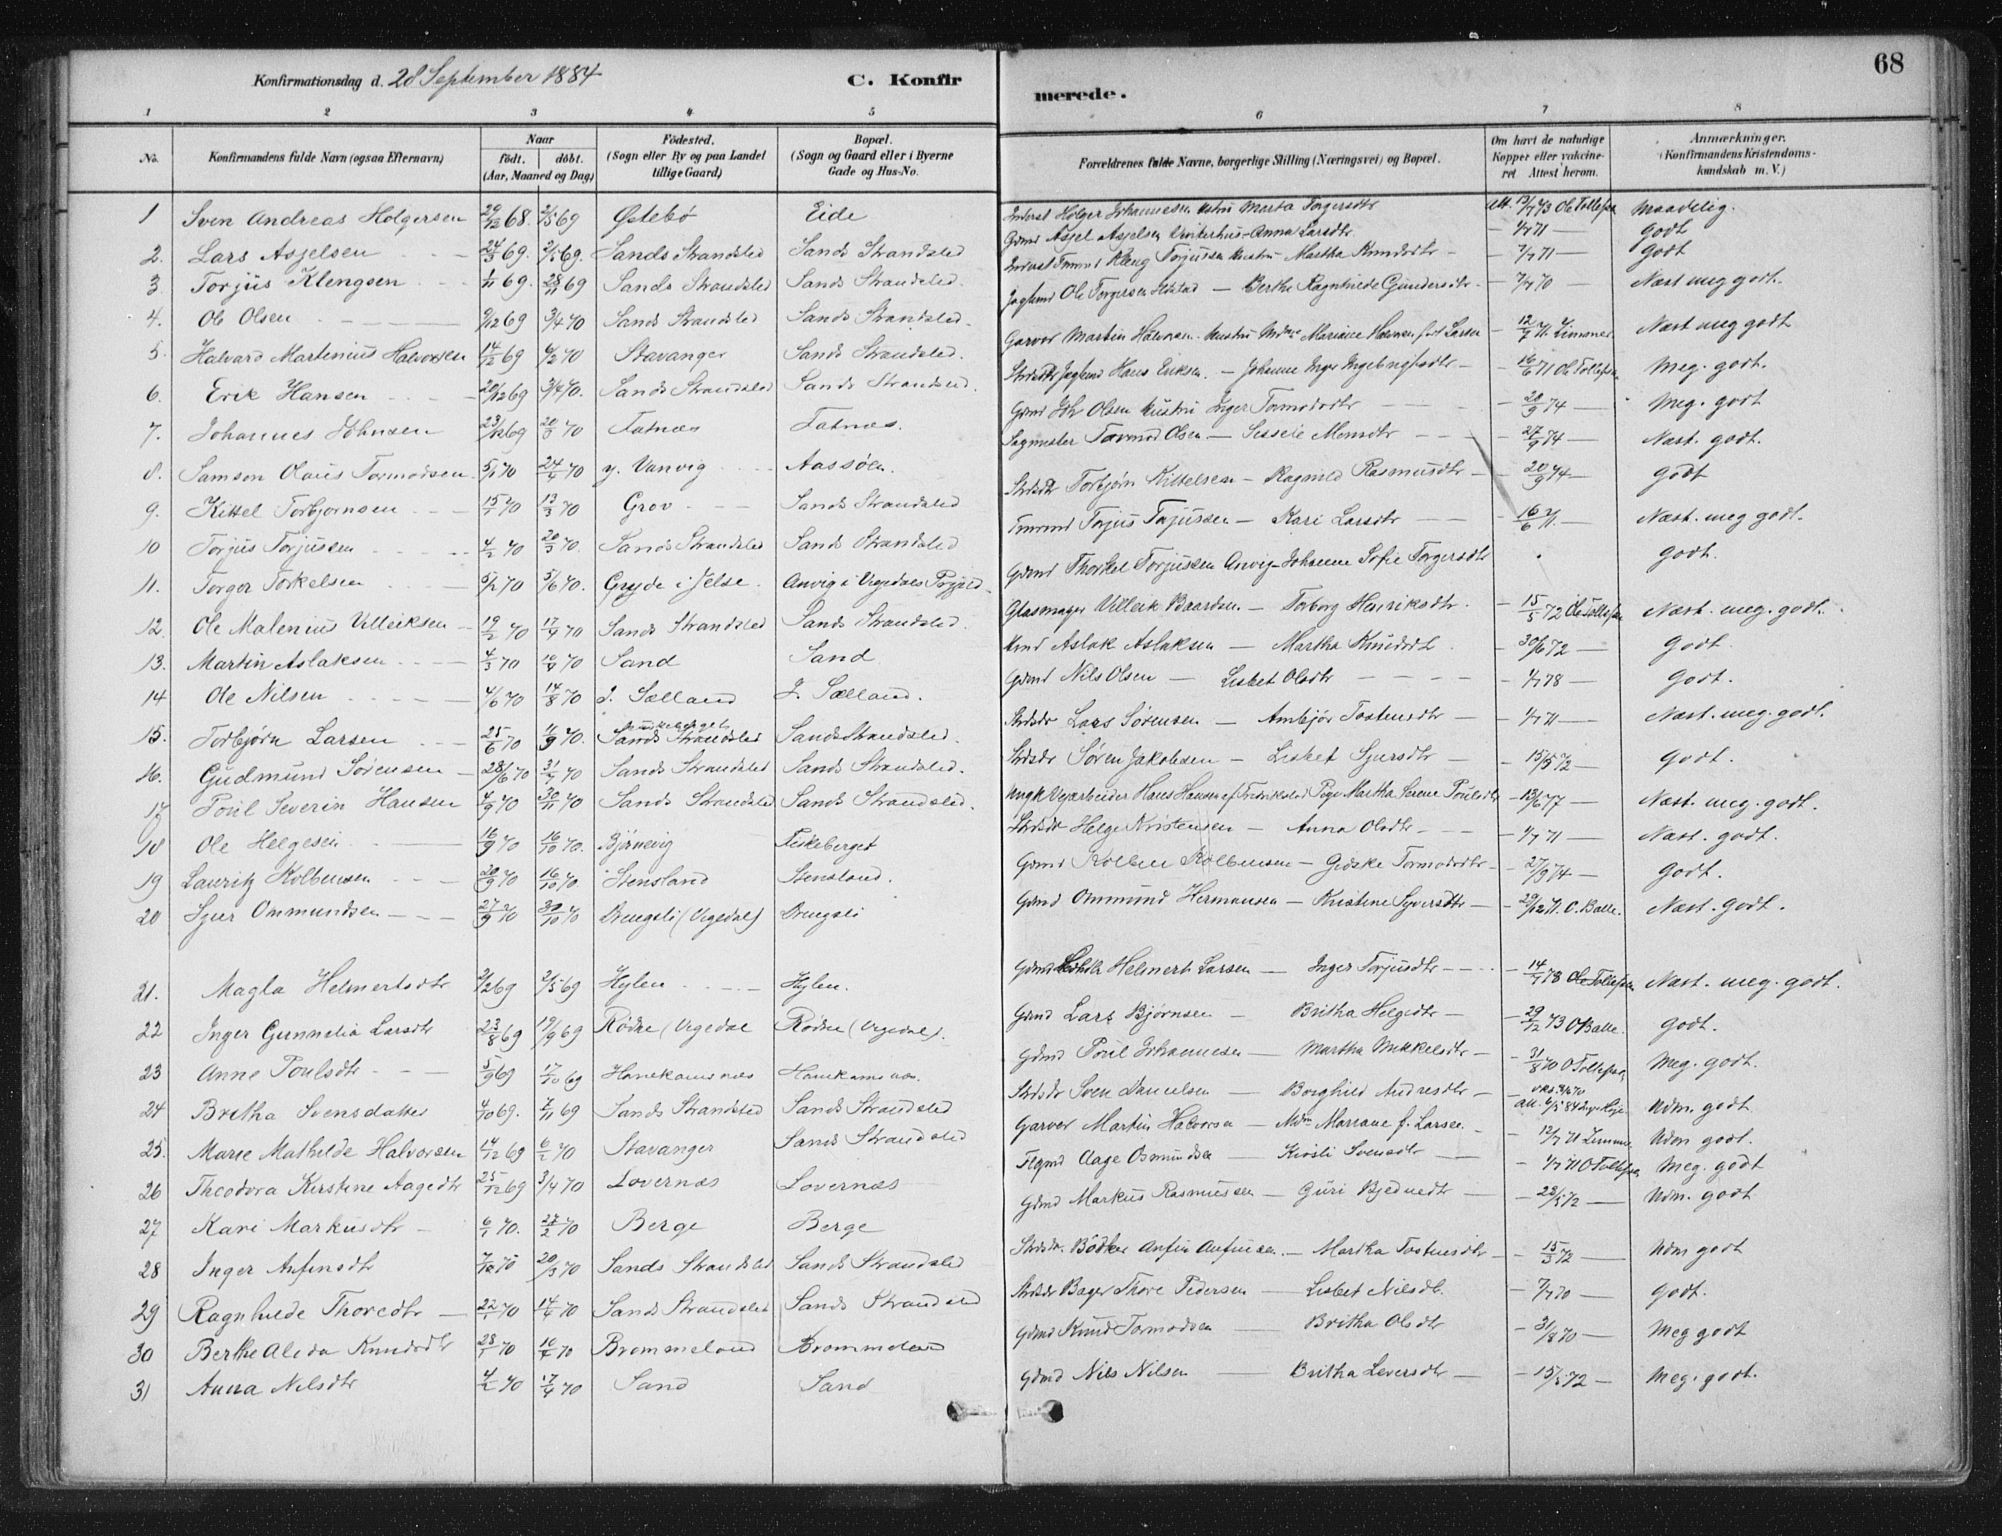 68
Konfirmationsdag d. 28 September 1884 C. Konfirmerede.
1 2 3 4 5 6 7 8
No. Konfirmandens fulde Navn (ogsaa Efternavn) Naar födt. döbt. (Aar, Maaned og Dag) Födested. (Sogn eller By og paa Landet tillige Gaard) Bopæl. (Sogn og Gaard eller i Byerne Gade og Hus-No. Forældrenes fulde Navne, borgerlige Stilling (Næringsvei) og Bopæl. Om havt de naturlige Kopper eller vakcineret Attest herom. Anmærkninger. (Konfirmandens Kristendomskundskab m. V.)
1 Sven Andreas Holgersen 29/12 68. 2/5 69 Østebö Eide Holger Johannesen Hustru Marta Torgersdtr att. 13/7 73 Ole Tollefsen Maadelig.
2. Lars Asjelsen 24/3 69. 2/5 69. Sands Strandsted Sands Strandsted Gdmd Asjel Asjelsen Anna Larsdtr. 4/7 71 Godt
3 Torjus Klengsen 1/11 69. 28/11 69 Sands Strandsted Sands Strandsted. Klæng Torjussen Hustru Martha Knudsdtr 7/7 71 Godt
4. Ole Olsen 9/12 69 3/4 70 Sands Strandsted Sands Strandsted. Ole Torgersen Berthe Ragnhilde Gundersdtr. 7/7 70 Næst meg godt.
5. Halvard Martinius Halvorsen 14/12 69 6/2 70 Stavanger Sands Strandsted. Garver Martin Halvorsen Hustru Mariane Larsen 12/7 71 Zimmer Næst meg godt
6. Erik Hansen 20/12 69 3/4 70. Sands Strandsted Sands Strandsted. Hans Eriksen. Johanne Inger Ingebrigtsdtr 16/6 71 Ole Tollefsen Meg. godt.
7. Johannes Johnsen 23/12 69 20/3 70 Tatnæs Tatnæs. Gdmd Joh Olsen Hustru Inger Tormodsdtr 20/9 74 Meg. godt
8. Samson Olaus Tormodsen 5/1 70 24/4 70 y. Vanvig Aassölen. Sagmester Tormod Olsen Sissele Monsdtr 27/9 74 Næst. godt.
9. Kittel Torbjornsen 15/1 70 13/3 70 Grov Sands Strandsted Torbjørn Kittelsen Ragnild Rasmusdtr 20/9 74 Godt
10 Torjus Torjussen 4/2 70 20/3 70. Sands Strandsted Sands Strandsted Tømmd Torjus Torjussen Kari Larsdtr 16/6 71. Næst. meg godt.
11. Torger Torkelsen 5/2 70 5/6 70. Gryde i Jelse. Anvig i Vigedals Prgjeld. Gdmd Thorkel Torjussen Anvig Johanne Sofie Torgersdtr Godt.
12. Ole Malenius Villeiksen 19/2 70 17/4 70 Sands Strandsted Sands Strandsted. Glasmager Villeik Baardsen Torborg Henriksdtr. 15/5 72 Ole Tollefsen Næst. meg. godt.
13. Martin Aslaksen 4/3 70 10/4 70 Sand Sand Aslak Aslaksen Martha Knudsdtr. 30/6 72 Godt.
14 Ole Nilsen 4/6 70 14/8 70 I. Sælland I. Sælland. Gdmd Nils Olsen Lisbet Olsdtr 4/7 78 Godt.
15. Torbjörn Larsen 25/6 70 4/9 70. Sands Strandsted Sands Strandsted. Strdsdr Lars Sörensen Ambjör Tostensdtr 4/7 71 Næst. meg. godt.
16. Gudmund Sörensen 28/6 70 31/7 70 Sands Strandsted Sands Strandsted. Strdsdr Sören Jakobsen Lisbet Sjursdtr 15/5 72 Godt.
17 Poul Severin Hansen 4/9 70 30/11 70 Sands Strandsted Sands Strandsted. Veiarbeider Hans Hansen Fredrikstad Pige Martha Serene Poulsdtr 13/6 77 Næst. meg. godt.
18 Ole Helgesen 16/9 70 16/10 70. Björnevig Fiskeberget Strdsdr Helge Kristensen Anna Olsdtr 4/7 71 Næst. godt.
19 Lauritz Kolbensen 20/9 70 16/10 70. Stensland Stensland. Gdmd Kolben Kolbensen Gidske Tormodsdtr 27/9 74 Godt.
20 Sjur Ommundsen 27/9 70 30/10 70 Drengsli (Vigedal) Drengsli Gdmd Ommund Hermansen Kristine Syversdtr 29/12 71. C. Balle. Næst. godt.
21. Magla Helmertsdtr 9/2 69 2/5 69 Hylen Hylen. Helmert Larsen Inger Torjusdtr 14/7 78 Ole Tollefsen Næst. meg. godt.
22 Inger Gunnelia Larsdtr 23/8 69 19/9 69 Rödne (Vigedal Rödne (Vigedal). Gdmd Lars Bjørnsen Britha Helgesdtr 29/12 73 O Balle. Godt.
23 Anne Poulsdtr 5/9 69 17/10 69 Hanekamnæs Hanekamnæs Gdmd Poul Johannesen Martha Mikkelsdtr 31/8 70 O Tollefsen Meg. godt.
24 Britha Svensdatter 4/10 69. 7/11 69 Sands Strandsted Sands Strandsted Strdsdr Sven Danielsen Borghild Andresdtr att. 6/5 84 Udm. godt
25. Marie Mathilde Halvorsen 14/12 69 6/2 70 Stavanger Sands Strandsted Garver Martin Halvorsen Mdm Mariane f. Larsen 12/7 71 Zimmer Udm godt.
26 Theodora Kirstine Aagedtr 25/12 69 3/4 70 Lovernæs Lovernæs Aage Osmundsen Kirsti Svensdtr 4/7 71 O Tollefsen Meg. godt
27 Kari Markusdtr 6/1 70. 27/2 70 Berge Berge Gdmd Markus Rasmussen Guri Bjednedtr 28/5 72 Udm. godt
28 Inger Anfinsdtr 7/12 70 20/3 70 Sands Strandsted Sands Strandsted Strdsdr. Bödker Anfin Anfinsen. Martha Tostensdtr 15/3 72 Udm godt
29 Ragnhilde Thoredtr 22/1 70 14/4 70 Sands Strandsted Sands Strandsted Strdsdr Bager Thore Pedersen Lisbet Nilsdtr. 7/7 70 Godt.
30 Berthe Alida Knudsdtr 28/1 70 10/4 70 Brommeland Brommeland Gdmd Knud Tormodsen Britha Olsdtr 31/8 70 Meg godt
31 Anna Nilsdtr 4/2 70 17/4 70 Sand Sand Gdmd Nils Nilsen Britha Leversdtr 15/5 72 Meg. godt.